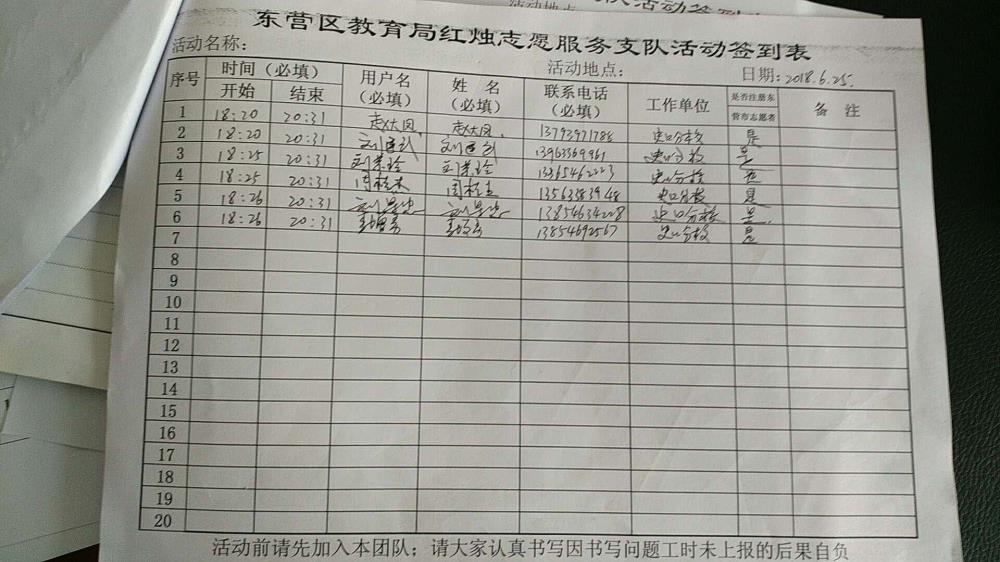 东营区教育局红烛志愿服务支队活动签到表
活动名称： 活动地点： 日期：2018.6.25.
序号 时间（必填） 用户名（必填） 姓 名（必填） 联系电话（必填） 工作单位 是否注册东营市志愿者 备 注
开始 结束
1 18:20 20:31 赵大凤 赵大凤 13793971788 史口分校 是
2 18:20 20:31 13963369961 史口分校 是
3 18:25 20:31 13365462223 史口分校 是
4 18:25 20:31 史口分校 是
5 18:26 20:31 13854634228 史口分校 是
6 18:26 20:31 13854692567 史口分校 是
7
8
9
10
11
12
13
14
15
16
17
18
19
20
活动前请先加入本团队；请大家认真书写因书写问题工时未上报的后果自负